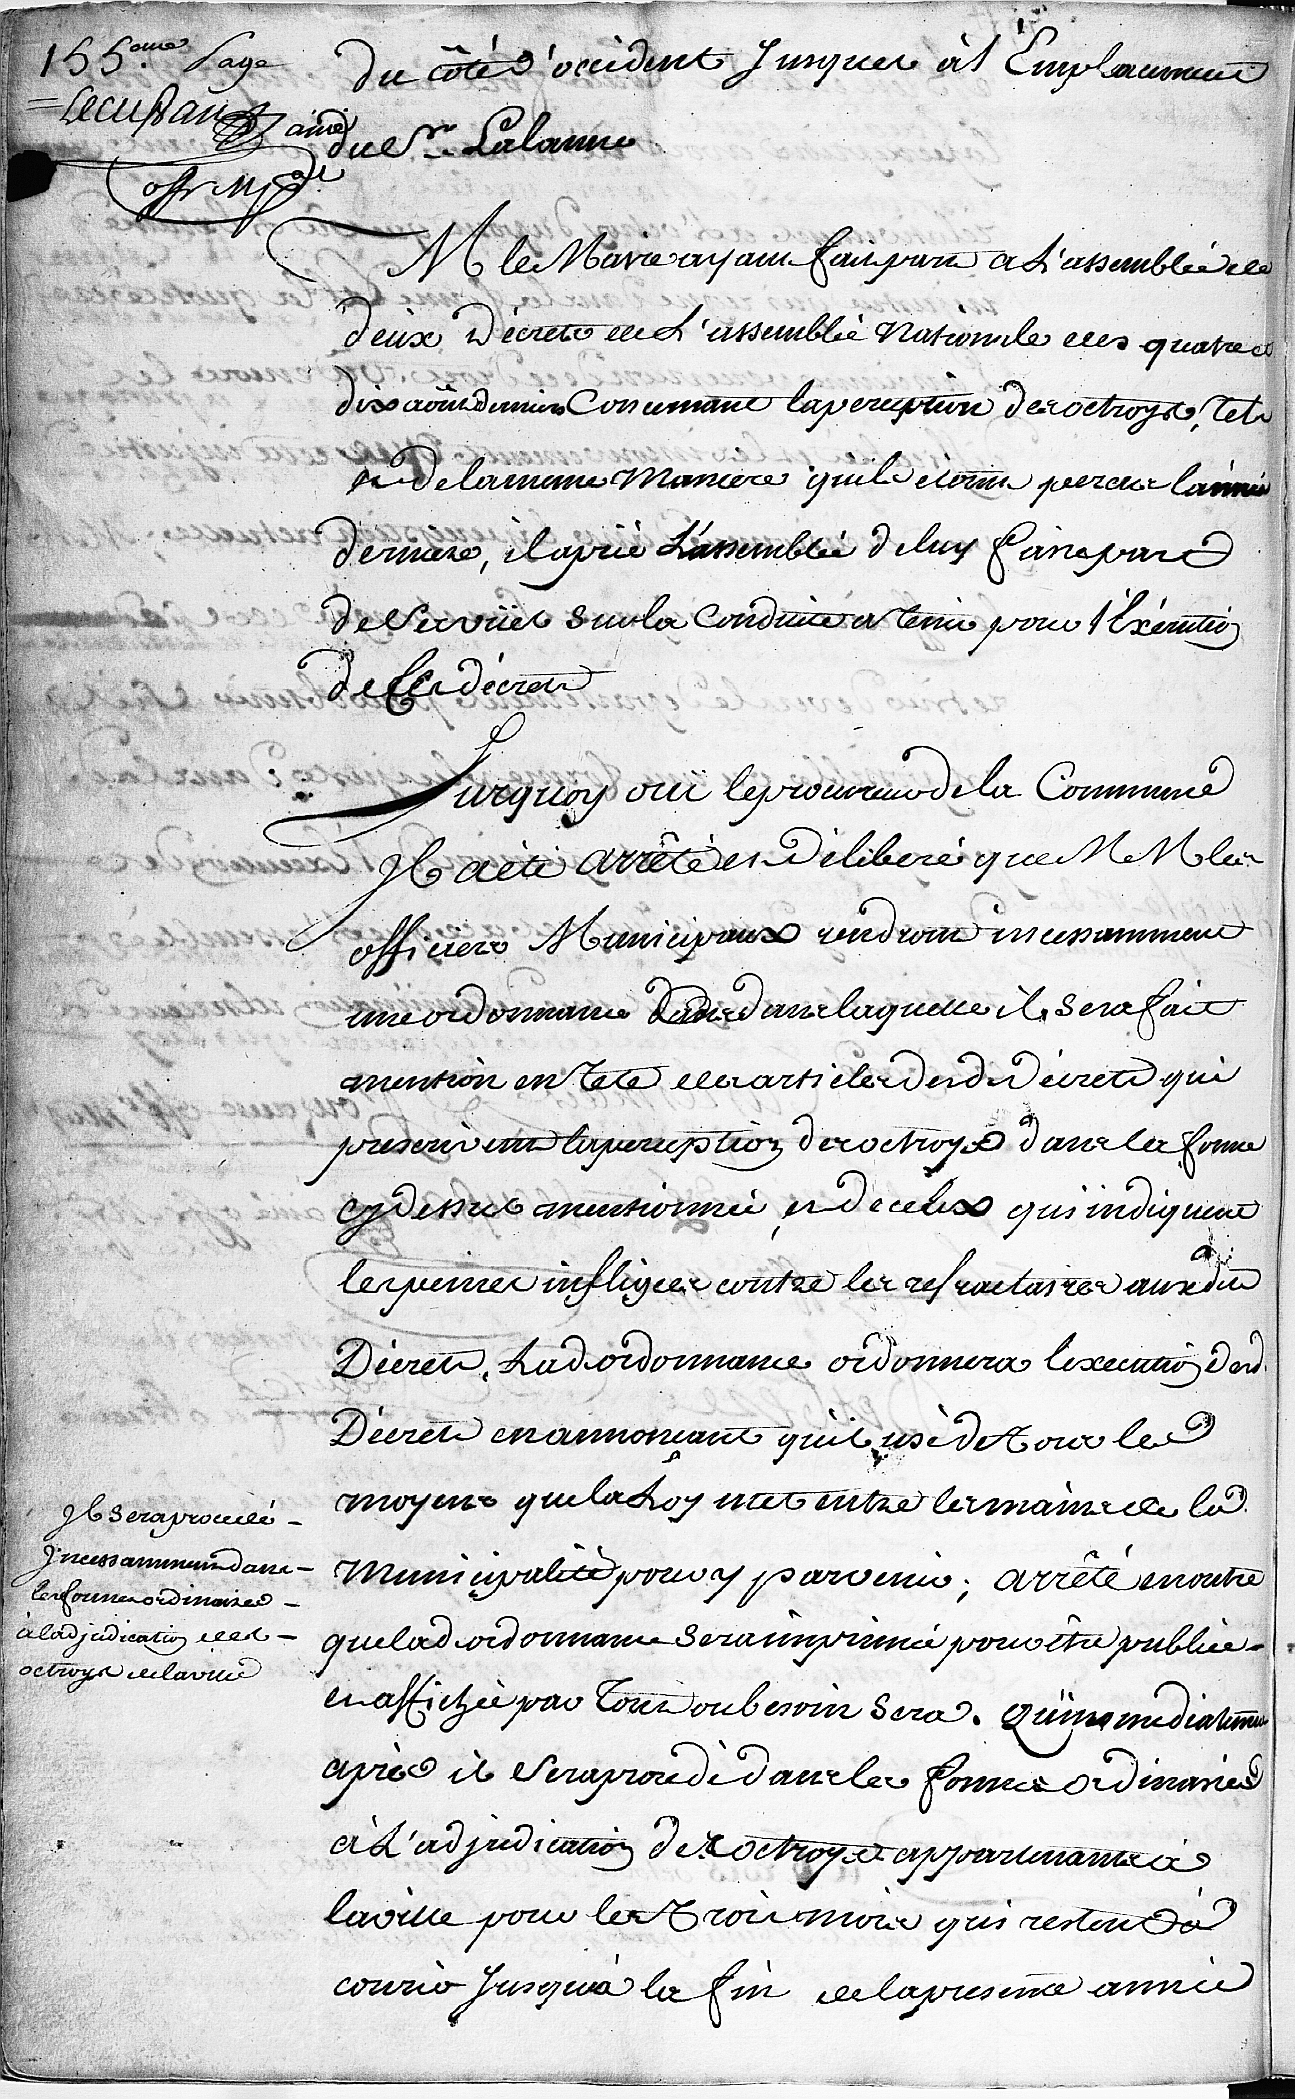 155.eme page
du côté d'occident Jusques à l'Emplacement
ainé
offr. mpal.
du Sr. Lalanne
M le Maire ayant fait part a L'assemblée de
deux Décrets de L'assemblée Nationale des quatre et
dix août dernier Concernant la perception des octroys, tels
et de la meme Maniere qu'ils etoint percus l'année
derniere, il a prié L'assemblée de luy faire part
de Ses vües sur la Conduite a tenir pour l'Exécution
de Ces décrets
Surquoy ouï le procureur de la Commune
Il a été arrêté et Déliberé que MM les
officiers Municipaux rendront incessamment
une ordonnance dans laquelle il sera fait
mention en tete des articles desds. Décrets qui
prescrivent la perception des octroys dans la forme
cy dessus mentionnée, et de ceux qui indiquent
les peines infligées contre les refractaires auxdits
Décrets, Lad. ordonnance ordonnera l'execution desd.
Décrets en annonçant qu'il usé de tous les
moyens que la Loy met entre les mains de la
Municipalité pour y parvenir ; arrêté en outre
que lad. ordonnance sera imprimée pour être publiée
et affichée par tout ou besoin sera. Qu'immediatement
après il Sera procédé dans les formes ordinaires
à L'adjudication des octroys appartenants à
la ville pour les trois mois qui restent à
courir Jusqu'à la fin de la presente année
Il sera procédé
Incessamment dans
les formes ordinaires
à ladjudication des
octroys de la ville